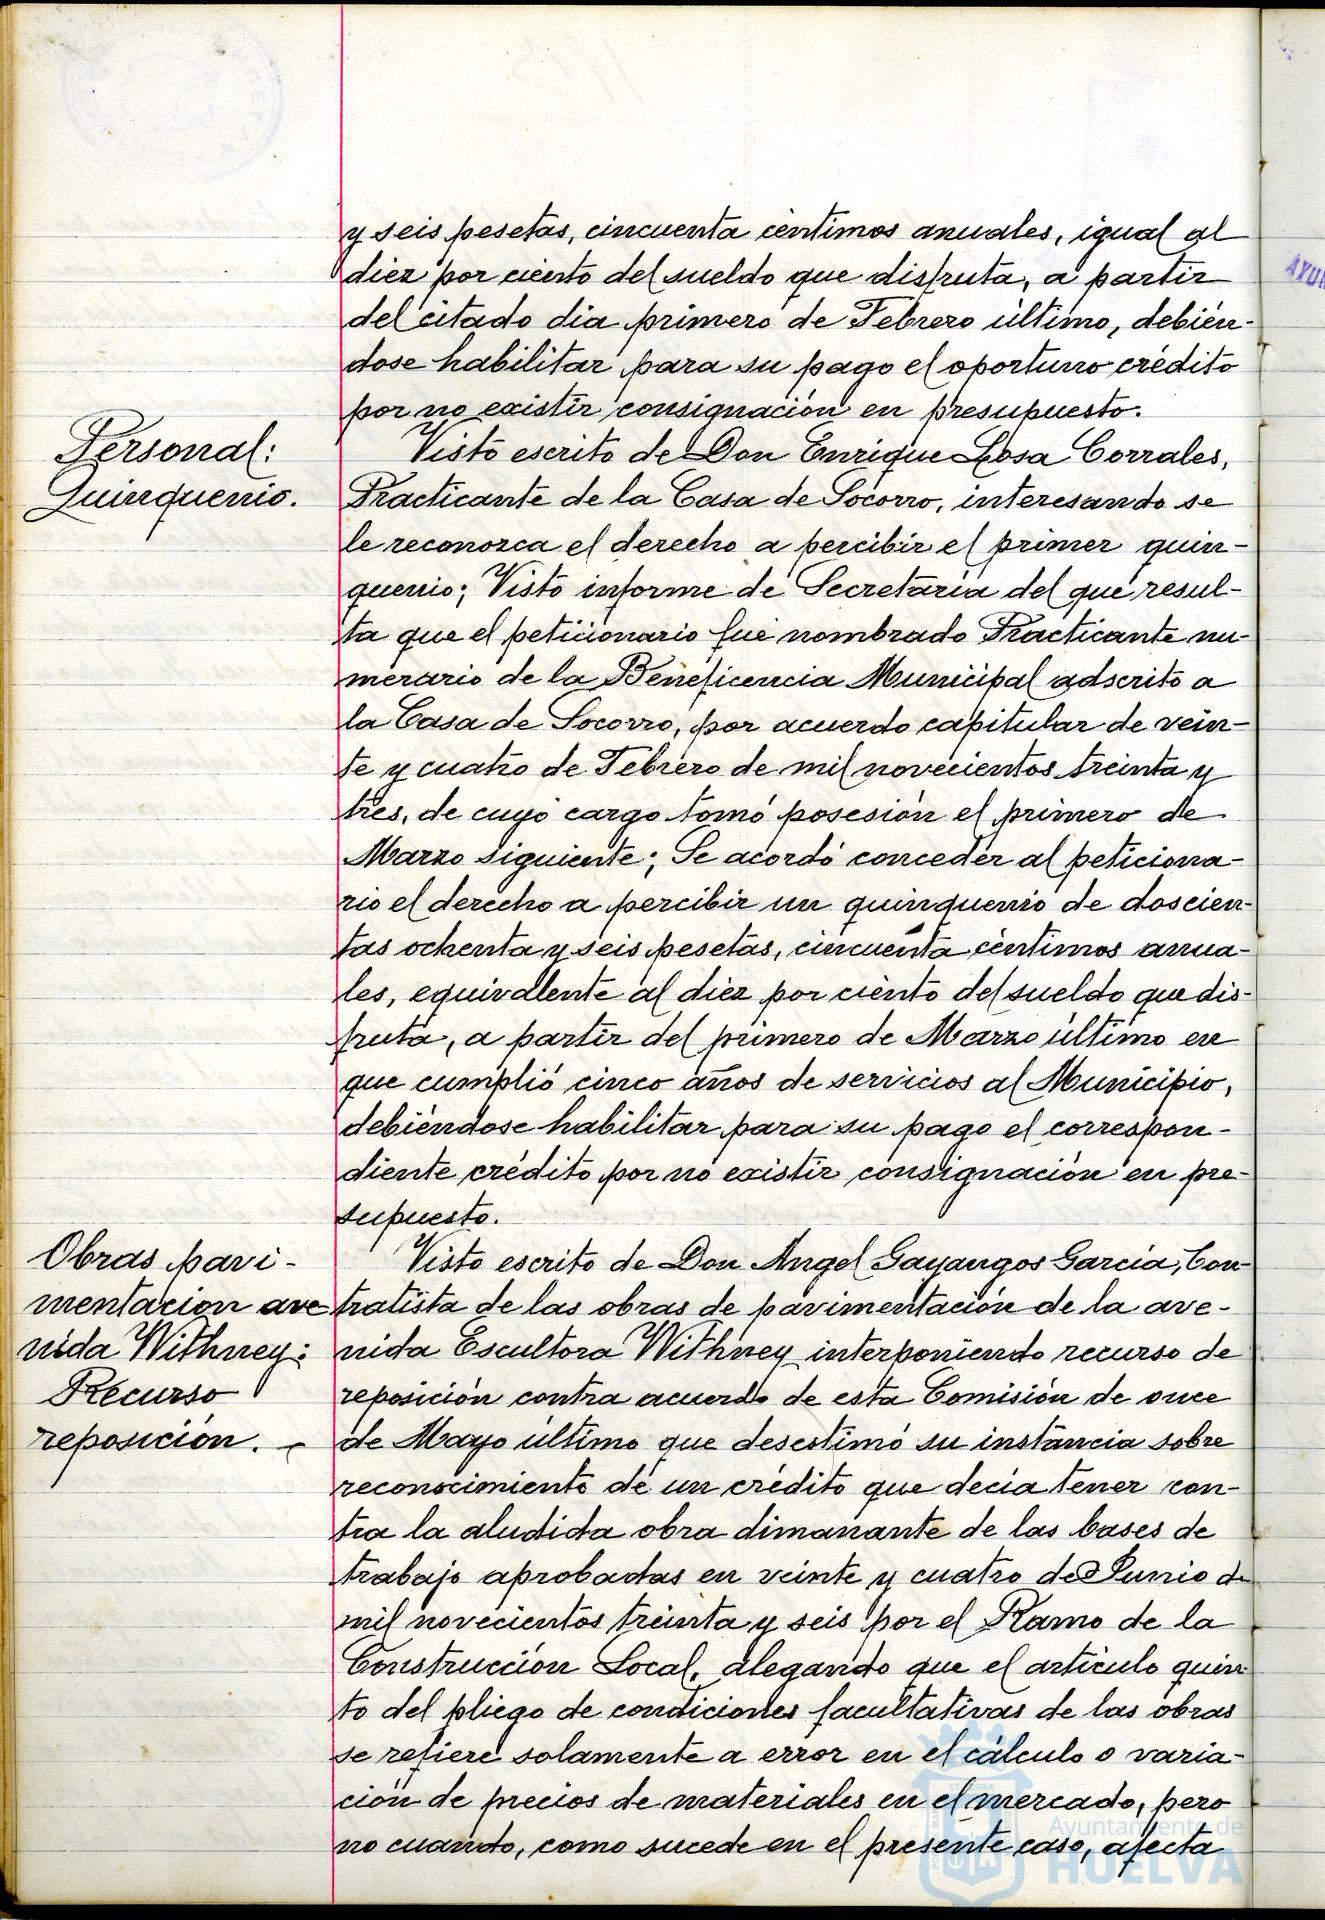 y seis pesetas, cincuenta céntimos anuales, igual al
diez por ciento del sueldo que disfruta, a partir
del citado dia primero de Febrero último, debién-
dose habilitar para su pago el oportuno crédito
por no existir consignación en presupuesto.
Personal:
Quinquenio.
Visto escrito de Don Enrique Losa Corrales,
Practicante de la Casa de Socorro, interesando se
le reconozca el derecho a percibir el primer quin-
quenio; Visto informe de Secretaría del que resul-
ta que el peticionario fué nombrado Practicante nu-
merario de la Beneficencia Municipal adscrito a
la Casa de Socorro, por acuerdo capitular de vein-
te y cuatro de Febrero de mil novecientos treinta y
tres, de cuyo cargo tomó posesión el primero de
Marzo siguiente; Se acordó conceder al peticiona-
rio el derecho a percibir un quinquenio de doscien-
tas ochenta y seis pesetas, cincuenta céntimos anua-
les, equivalente al diez por ciento del sueldo que dis-
fruta, a partir del primero de Marzo último en
que cumplió cinco años de servicios al Municipio,
debiéndose habilitar para su pago el correspon-
diente crédito por no existir consignación en pre-
supuesto.
Obras pavi-
mentacion ave
nida Withney:
Recurso
reposición.
Visto escrito de Don Angel Gayangos García, Con-
tratista de las obras de pavimentación de la ave-
nida Escultora Withney interponiendo recurso de
reposición contra acuerdo de esta Comisión de once
de Mayo último que desestimó su instancia sobre
reconocimiento de un crédito que decía tener con-
tra la aludida obra dimanante de las bases de
trabajo aprobadas en veinte y cuatro de Junio de
mil novecientos treinta y seis por el Ramo de la
Construcción Local, alegando que el artículo quin
to del pliego de condiciones facultativas de las obras
se refiere solamente a error en el cálculo o varia-
ción de precios de materiales en el mercado, pero
no cuando, como sucede en el presente caso, afecta
Ayuntamiento de
HUELVA